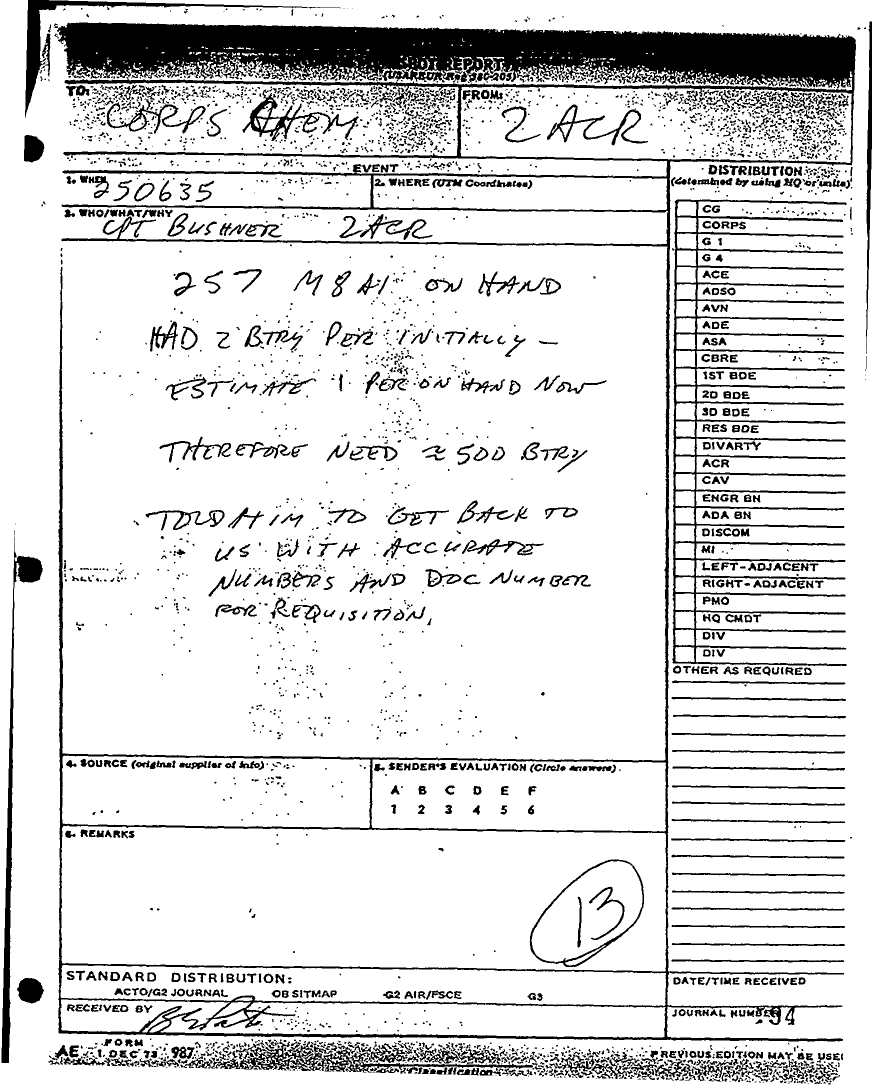 REPORT
(USAREUR Reg 380-205)
TO: CORPS CHEM
FROM: 2 ACR
EVENT
1. WHEN 250635
2. WHERE (UTM Coordinates)
3. WHO/WHAT/WHY
CPT BUSHNER 2ACR
257 M8A1 ON HAND
HAD 2 BTRY PER INITIALLY -
ESTIMATE 1 PER ON HAND NOW
THEREFORE NEED ≈ 500 BTRY
TOLD HIM TO GET BACK TO
US WITH ACCURATE
NUMBERS AND DOC NUMBER
FOR REQUISITION.
DISTRIBUTION
(determined by using HQ or units)
CG
CORPS
G 1
G 4
ACE
ADSO
AVN
ADE
ASA
CBRE
1ST BDE
2D BDE
3D BDE
RES BDE
DIVARTY
ACR
CAV
ENGR BN
ADA BN
DISCOM
MI
LEFT-ADJACENT
RIGHT-ADJACENT
PMO
HQ CMDT
DIV
DIV
OTHER AS REQUIRED
4. SOURCE (original supplier of info)
5. SENDER'S EVALUATION (Circle answers)
A B C D E F
1 2 3 4 5 6
6. REMARKS
13
STANDARD DISTRIBUTION:
ACTO/G2 JOURNAL OB SITMAP G2 AIR/FSCE G3
RECEIVED BY
DATE/TIME RECEIVED
JOURNAL NUMBER 94
AE FORM 1 DEC 73 987
PREVIOUS EDITION MAY BE USE
Classification